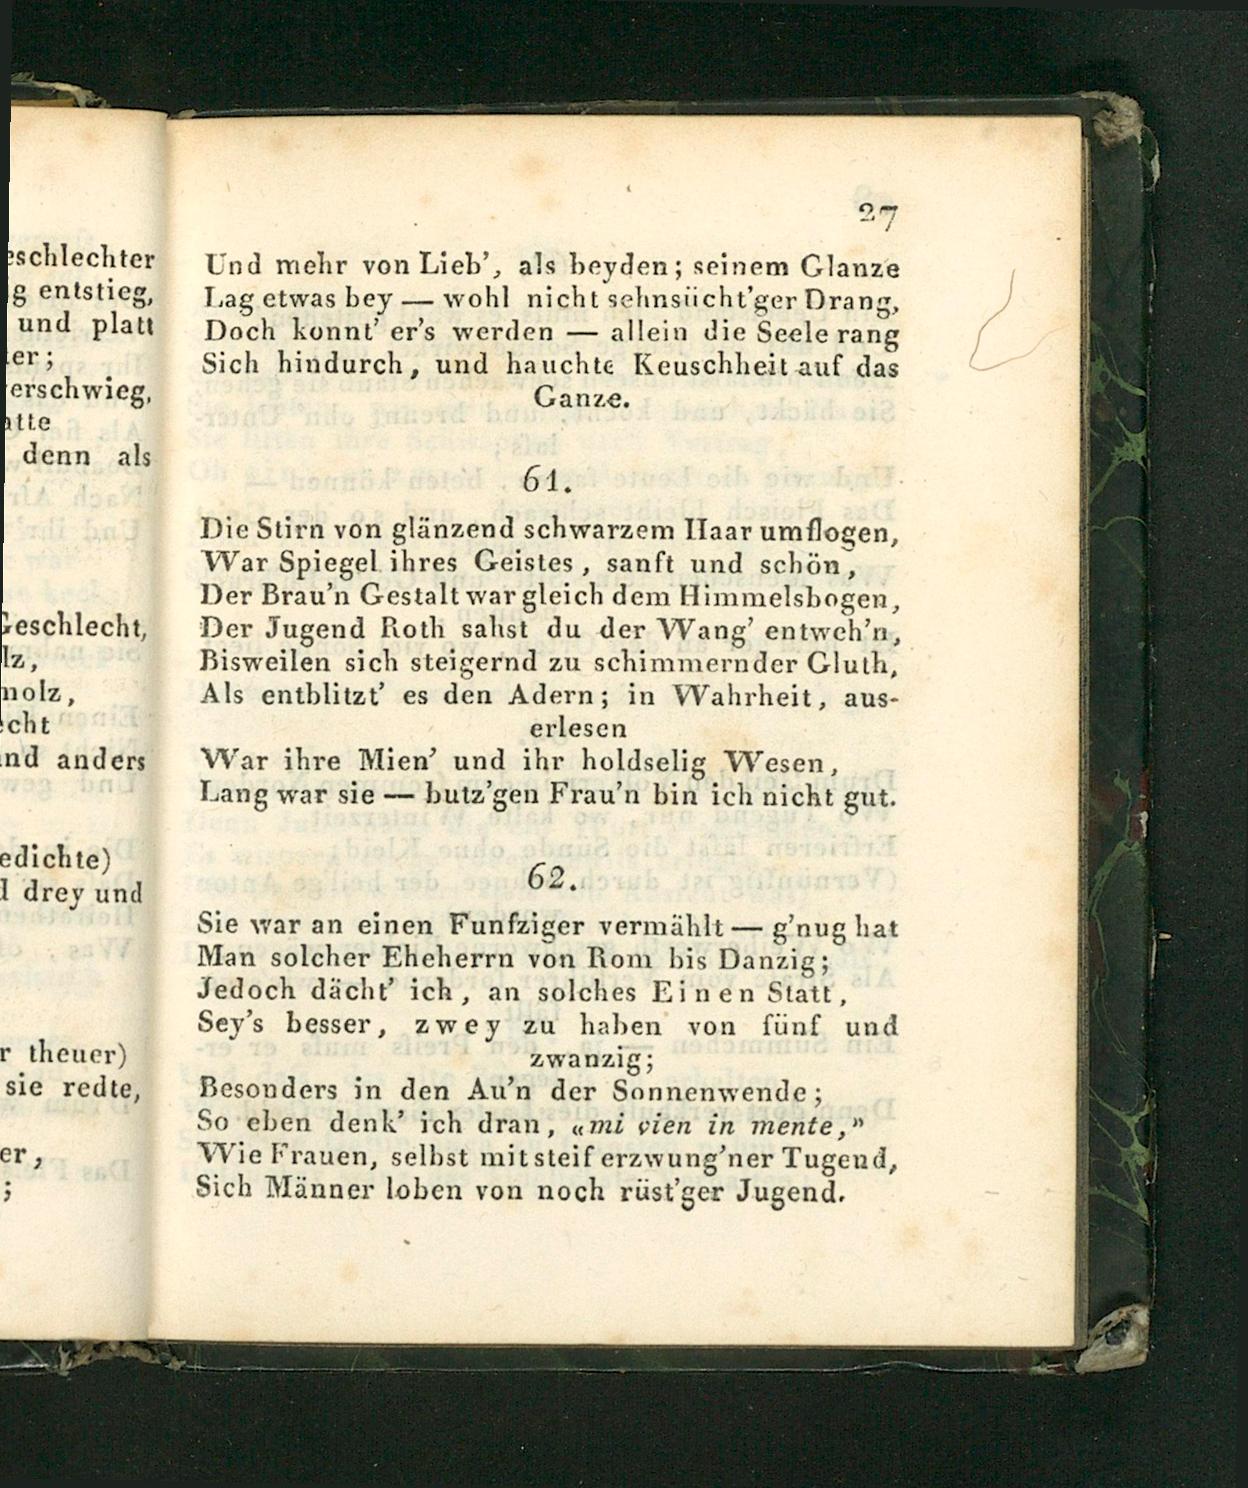 eschlechter
g entstieg,
und platt
er;
erschwieg,
atte
denn als
Geschlecht,
lz,
molz,
cht
nd anders
edichte)
d drey und
r theuer)
sie redte,
er,
;
27
Und mehr von Lieb', als beyden; seinem Glanze
Lag etwas bey — wohl nicht sehnsücht'ger Drang,
Doch konnt' er's werden — allein die Seele rang
Sich hindurch, und hauchte Keuschheit auf das
Ganze.
61.
Die Stirn von glänzend schwarzem Haar umflogen,
War Spiegel ihres Geistes, sanft und schön,
Der Brau'n Gestalt war gleich dem Himmelsbogen,
Der Jugend Roth sahst du der Wang' entweh'n,
Bisweilen sich steigernd zu schimmernder Gluth,
Als entblitzt' es den Adern; in Wahrheit, aus-
erlesen
War ihre Mien' und ihr holdselig Wesen,
Lang war sie — butz'gen Frau'n bin ich nicht gut.
62.
Sie war an einen Funfziger vermählt — g'nug hat
Man solcher Eheherrn von Rom bis Danzig;
Jedoch dächt' ich, an solches Einen Statt,
Sey's besser, zwey zu haben von fünf und
zwanzig;
Besonders in den Au'n der Sonnenwende;
So eben denk' ich dran, «mi vien in mente,»
Wie Frauen, selbst mit steif erzwung'ner Tugend,
Sich Männer loben von noch rüst'ger Jugend.